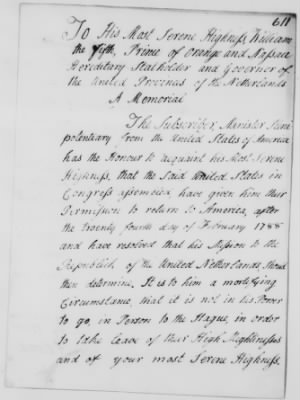 611
To His Most Serene Highness, William
the Fifth, Prince of Orange and Nassau
Hereditary Stadholder and Governor of
the United Provinces of the Netherlands
A Memorial
The Subscriber, Minister Pleni
potentiary from the United States of America
has the Honour to acquaint his Most Serene
Highness, that the Said United States in
Congress assembled, have given him their
Permission to return to America, after
the twenty fourth day of February 1788
and have resolved that his Mission to the
Republick of the United Netherlands, Should
then determine. It is to him a mortifying
Circumstance, that it is not in his Power
to go, in Person to the Hague, in order
to take leave of their High Mightinesses
and of your most Serene Highness.